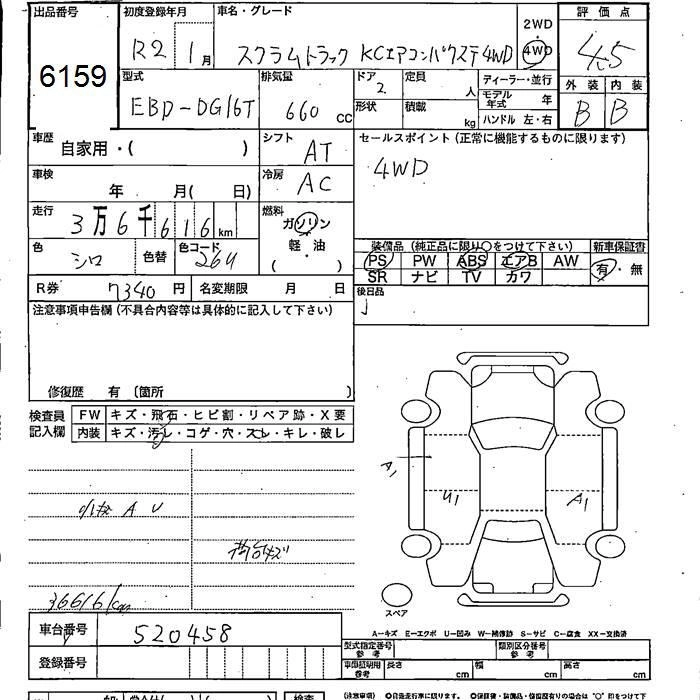 出品番号
6159
初度登録年月
R2 1月
車名・グレード
スクラムトラック KCエアコンパワステ4WD
2WD
4WD
評価点
4.5
型式
EBD-DG16T
排気量
660 CC
ドア
2
定員
人
形状
積載
kg
ディーラー・並行
モデル年式 年
ハンドル 左・右
外装 内装
B B
車歴
自家用・( )
シフト
AT
セールスポイント(正常に機能するものに限ります)
4WD
車検
年 月( 日)
冷房
AC
走行
3万6千616km
燃料
ガソリン
・
軽油
( )
色
シロ
色替
色コード
26U
装備品(純正品に限り○をつけて下さい)
新車保証書
PS PW ABS エアB AW
SR ナビ TV カワ
有・無
R券 7340円
名変期限 月 日
後日品
注意事項申告欄(不具合内容等は具体的に記入して下さい)
修復歴 有 (箇所 )
検査員記入欄
FW キズ・飛石・ヒビ割・リペア跡・X要
内装 キズ・汚レ・コゲ・穴・スレ・キレ・破レ
小キズ A U
荷台キズ
36616km
A1
U1
A1
スペア
A-キズ E-エクボ U-凹み W-補修跡 S-サビ C-腐食 XX-交換済
車台番号
520458
登録番号
型式指定番号 参考
類別区分番号 参考
車庫証明用 参考
長さ cm
幅 cm
高さ cm